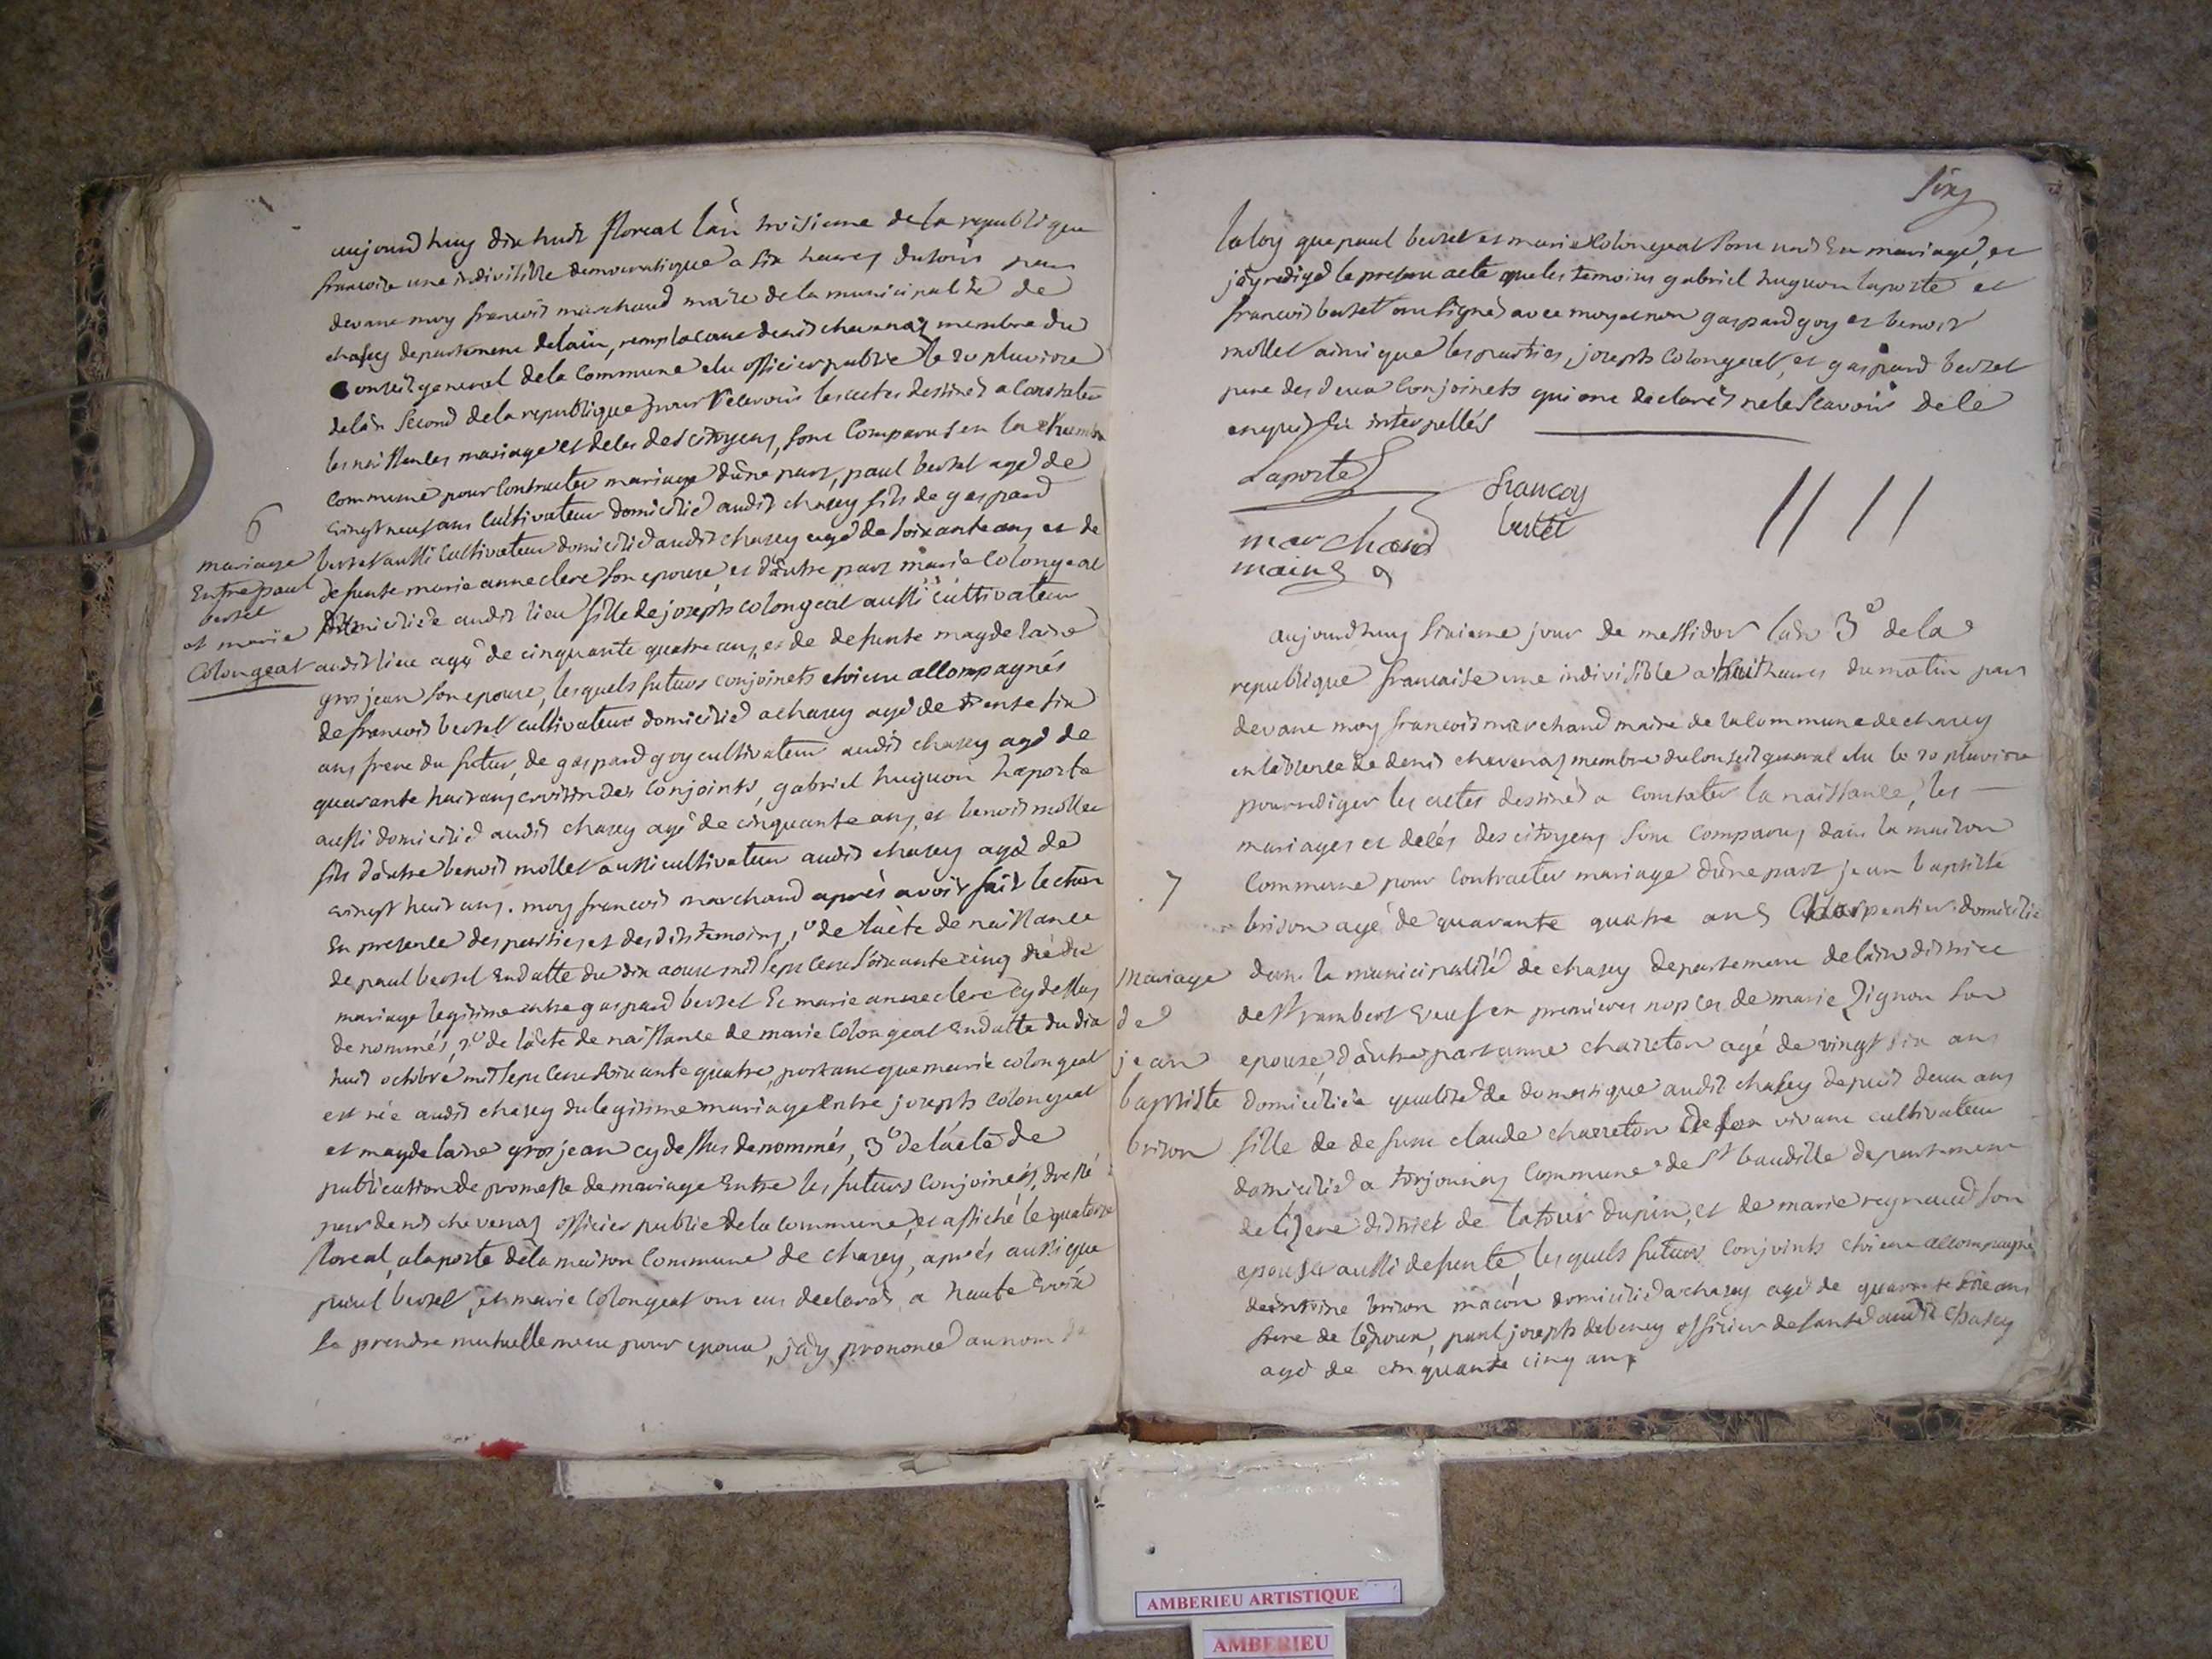 aujourd huy dix huit floreal l'an troisieme de la republique
francoise une indivisible democratique a six heures du soir par
devant moy francois marchand maire de la municipalité de
chasey departement de lain, remplacant denis chavanaz membre du
Conseil general de la Commune elu officier public le 20 pluviose
de lan Second de la republique pour recevoir les actes destinés a Constater
les naissances mariage et deces des citoyens, sont Comparus en la chambre
commune pour Contracter mariage d'une part, paul bertet agé de
vingt neuf ans Cultivateur domicilié audit chasey fils de gaspard
bertet aussi Cultivateur domicilié audit chasey agé de soixante ans et de
defunte marie anne clerc son epouse et d'autre part marie Colongeat
domiciliée audit lieu fille de joseph colongeat aussi cultivateur
audit lieu agé de cinquante quatre ans, et de defunte magdelaine
grosjean son epouse, lesquels futurs conjoints etoient accompagnés
de francois bertet cultivateur domicilié a chasey agé de trente six
ans frere du futur, de gaspard goy cultivateur audit chasey agé de
quarante huit ans voisin des Conjoints, gabriel huguon laporte
aussi domicilié audit chasey agé de cinquante ans, et benoit mollet
fils d'autre benoit mollet aussi cultivateur audit chasey agé de
vingt huit ans. moy francois marchand après avoir fait lecture
En presence des parties et des dits temoins, 1º de l'acte de naissance
de paul bertet En datte du dix aoust mil sept cent soixante cinq né du
mariage legitime entre gaspard bertet Et marie anne clerc cy dessus
denommés, 2º de l'acte de naissance de marie Colongeat En datte du dix
huit octobre mil sept cent soixante quatre, portant que marie colongeat
est née audit chasey du legitime mariage Entre joseph Colongeat
et magdelaine grosjean cy dessus denommés, 3º de l'acte de
publication de promesse de mariage Entre les futurs Conjoints, dressé
par denis chevenaz officier public de la commune, et affiché le quatorze
floreal, a la porte de la maison Commune de chasey, après aussi que
paul bertet, et marie Colongeat ont eus declarés a haute voix
se prendre mutuellement pour epoux, j'ay prononcé au nom de
6
mariage
Entre paul
bertet
et marie
Colongeat
Six
la loy que paul bertet et marie Colongeat sont unis En mariage, et
j'ay redigé le present acte que les temoins gabriel huguon laporte et
francois bertet ont signés avec moy et non gaspard goy et benoit
mollet ainsi que les parties, joseph Colongeat, et gaspard bertet
pere des deux Conjoints qui ont declarés ne le scavoir de le
enquis et interpellés
Laporte
francoy
bertet
marchand
maire
aujourdhuy sixieme jour de messidor l'an 3e de la
republique francaise une indivisible a huit heures du matin par
devant moy francois marchand maire de la Commune de chasey
en labsence de denis chavenaz membre du Conseil general elu le 20 pluviose
pour rediger les actes destinés a Constater la naissance, les
mariages et decés des citoyens sont Comparus dans la maison
Commune pour Contracter mariage d'une part jean baptiste
brison agé de quarante quatre ans Charpentier domicilié
dans la municipalité de chasey departement de lain district
de St rambert veuf en premieres nopces de marie Zignon son
epouse, d'autre part anne charreton agé de vingt six ans
domiciliée qualité de domestique audit chasey depuis deux ans
fille de defunt claude charreton de son vivant cultivateur
domicilié a torjonnaz Commune de St baudille departement
de lizere district de Latour dupin, et de marie regnaud son
epouse aussi defunte, lesquels futurs Conjoints etoient accompagné
dantoine brison macon domicilié a chasey agé de quarante six ans
frere de l'epoux, paul joseph debeney officier de santé audit chasey
agé de cinquante cinq ans
7
Mariage
de
jean
baptiste
brison
AMBERIEU ARTISTIQUE
AMBERIEU